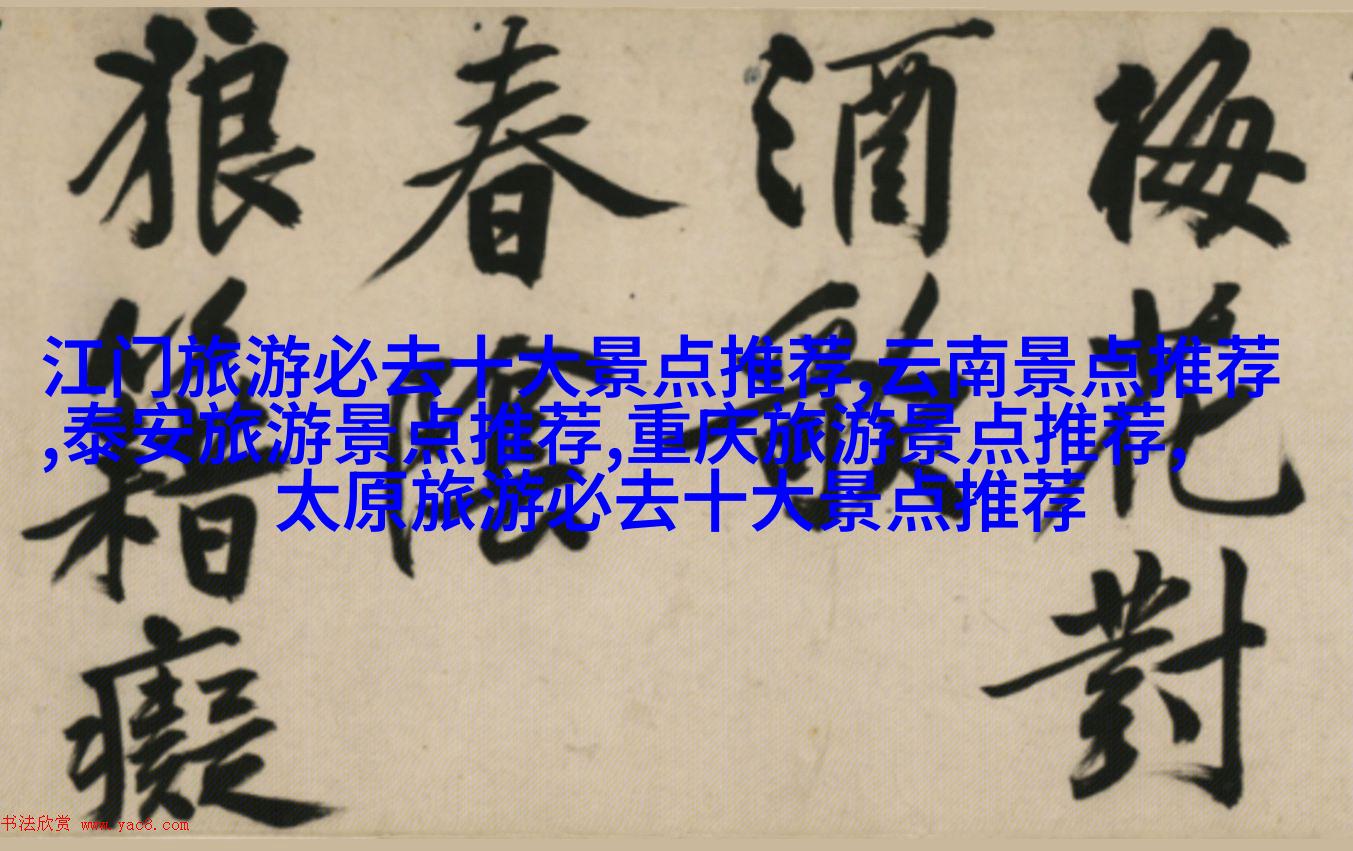 梅花對
酒
春
狼籍癡
江门旅游必去十大景点推荐,云南景点推荐
,泰安旅游景点推荐,重庆旅游景点推荐,
太原旅游必去十大景点推荐
书法欣赏 www.yac8.com